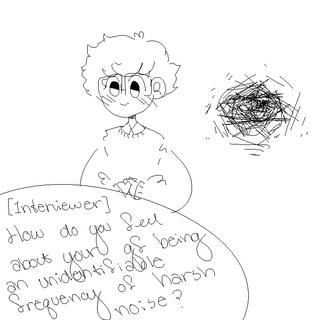 [Interviewer]
How do you feel
about your gf being
an unidentifiable
frequency of harsh
noise?